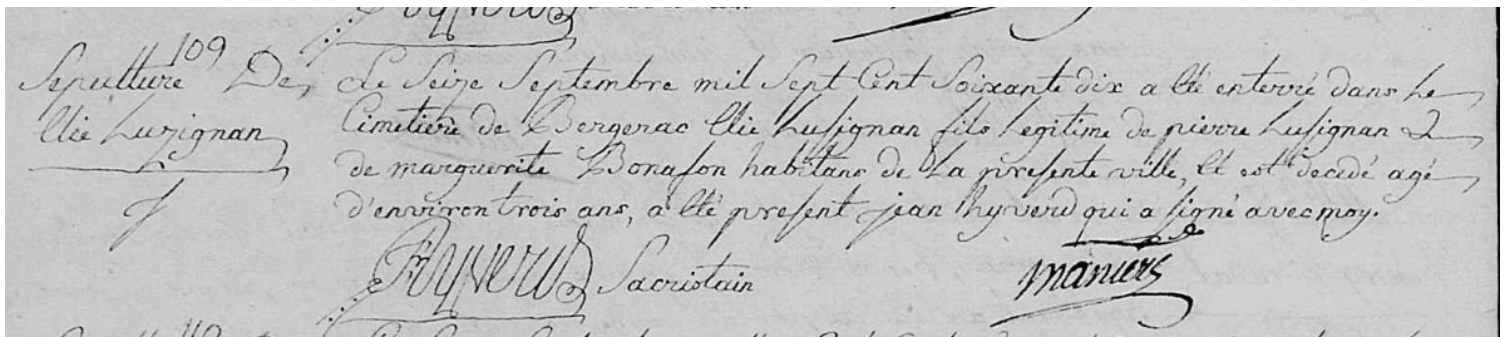 109
Sepulture De
Elie Luzignan
Le Seize Septembre mil Sept Cent Soixante dix a êté enterré dans Le
Cimetiere de Bergerac Elie Lusignan fils Legitime de pierre Lusignan &
de marguerite Bonafon habitans de La presente ville, Et est decedé agé
d'environ trois ans, a êté present jean hyverd qui a signé avec moy.
hyverd Sacristain